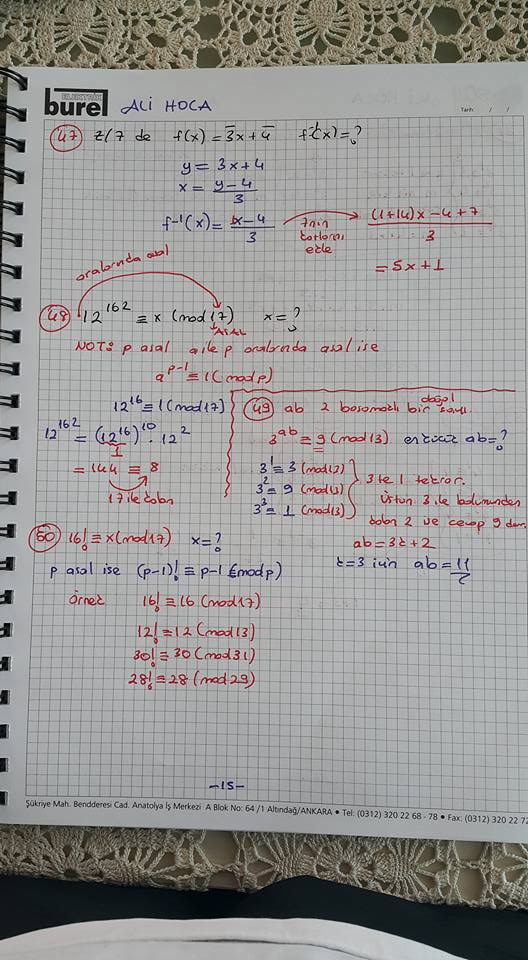 ELEKTRİK
burel
ALİ HOCA
Tarih: / /
47 Z/7 de f(x) = 3̅x + 4̅ f⁻¹(x) = ?
y = 3x + 4
x = y-4/3
f⁻¹(x) = x-4/3
7nin katlarını ekle
(1+14)x - 4 + 7 / 3
= 5x + 1
aralarında asal
48 12¹⁶² ≡ x (mod 17) x = ?
ASAL
NOT: p asal a ile p aralarında asal ise
a^(p-1) ≡ 1 (mod p)
12¹⁶ ≡ 1 (mod 17)
12¹⁶² = (12¹⁶)¹⁰ . 12²
1
= 144 ≡ 8
17 ile kalan
49 ab 2 basamaklı bir doğal sayı
3^ab ≡ 9 (mod 13) en küçük ab = ?
3¹ ≡ 3 (mod 13)
3² ≡ 9 (mod 13)
3³ ≡ 1 (mod 13)
3 te 1 tekrar.
Üstün 3 ile bölümünden
kalan 2 ve cevap 9 dan
ab = 3k + 2
k = 3 için ab = 11
50 16! ≡ x (mod 17) x = ?
p asal ise (p-1)! ≡ p-1 (mod p)
örnek 16! ≡ 16 (mod 17)
12! ≡ 12 (mod 13)
30! ≡ 30 (mod 31)
28! ≡ 28 (mod 29)
-15-
Şükriye Mah. Bendderesi Cad. Anatolya İş Merkezi A Blok No: 64 /1 Altındağ/ANKARA • Tel: (0312) 320 22 68 - 78 • Fax: (0312) 320 22 72